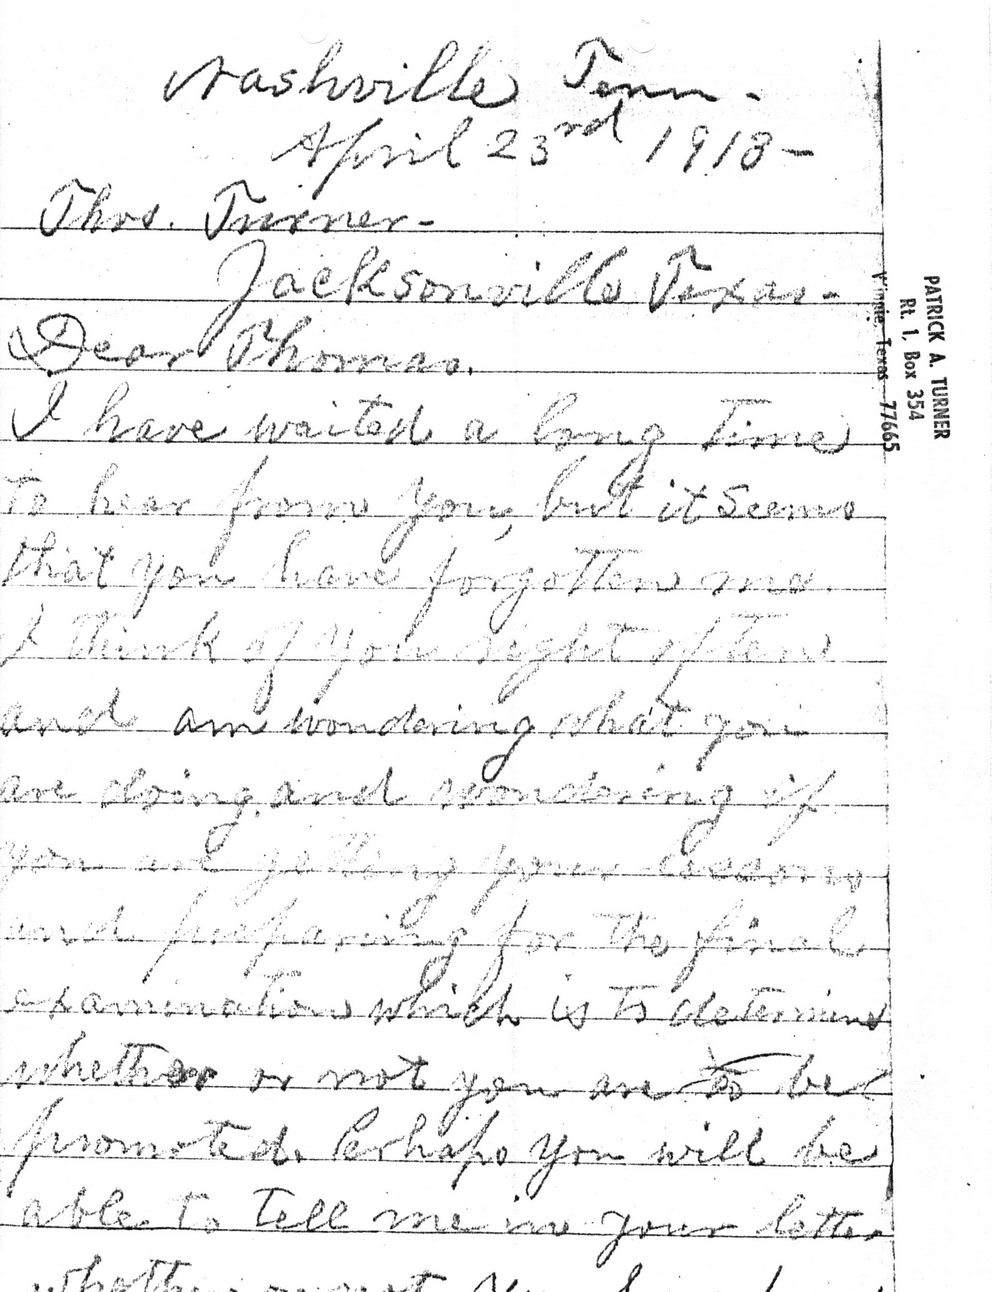 Nashville Tenn.
April 23rd 1918-
Thos. Turner-
Jacksonville Texas-
Dear Thomas.
I have waited a long time
to hear from you, but it seems
that you have forgotten me.
I think of you right often
and am wondering what you
are doing, and wondering if
you are getting your lessons
and preparing for the final
examination which is to determine
whether or not you are to be
promoted. Perhaps you will be
able to tell me in your letter
whether or not you
PATRICK A. TURNER
Rt. 1, Box 354
Winnie, Texas 77665